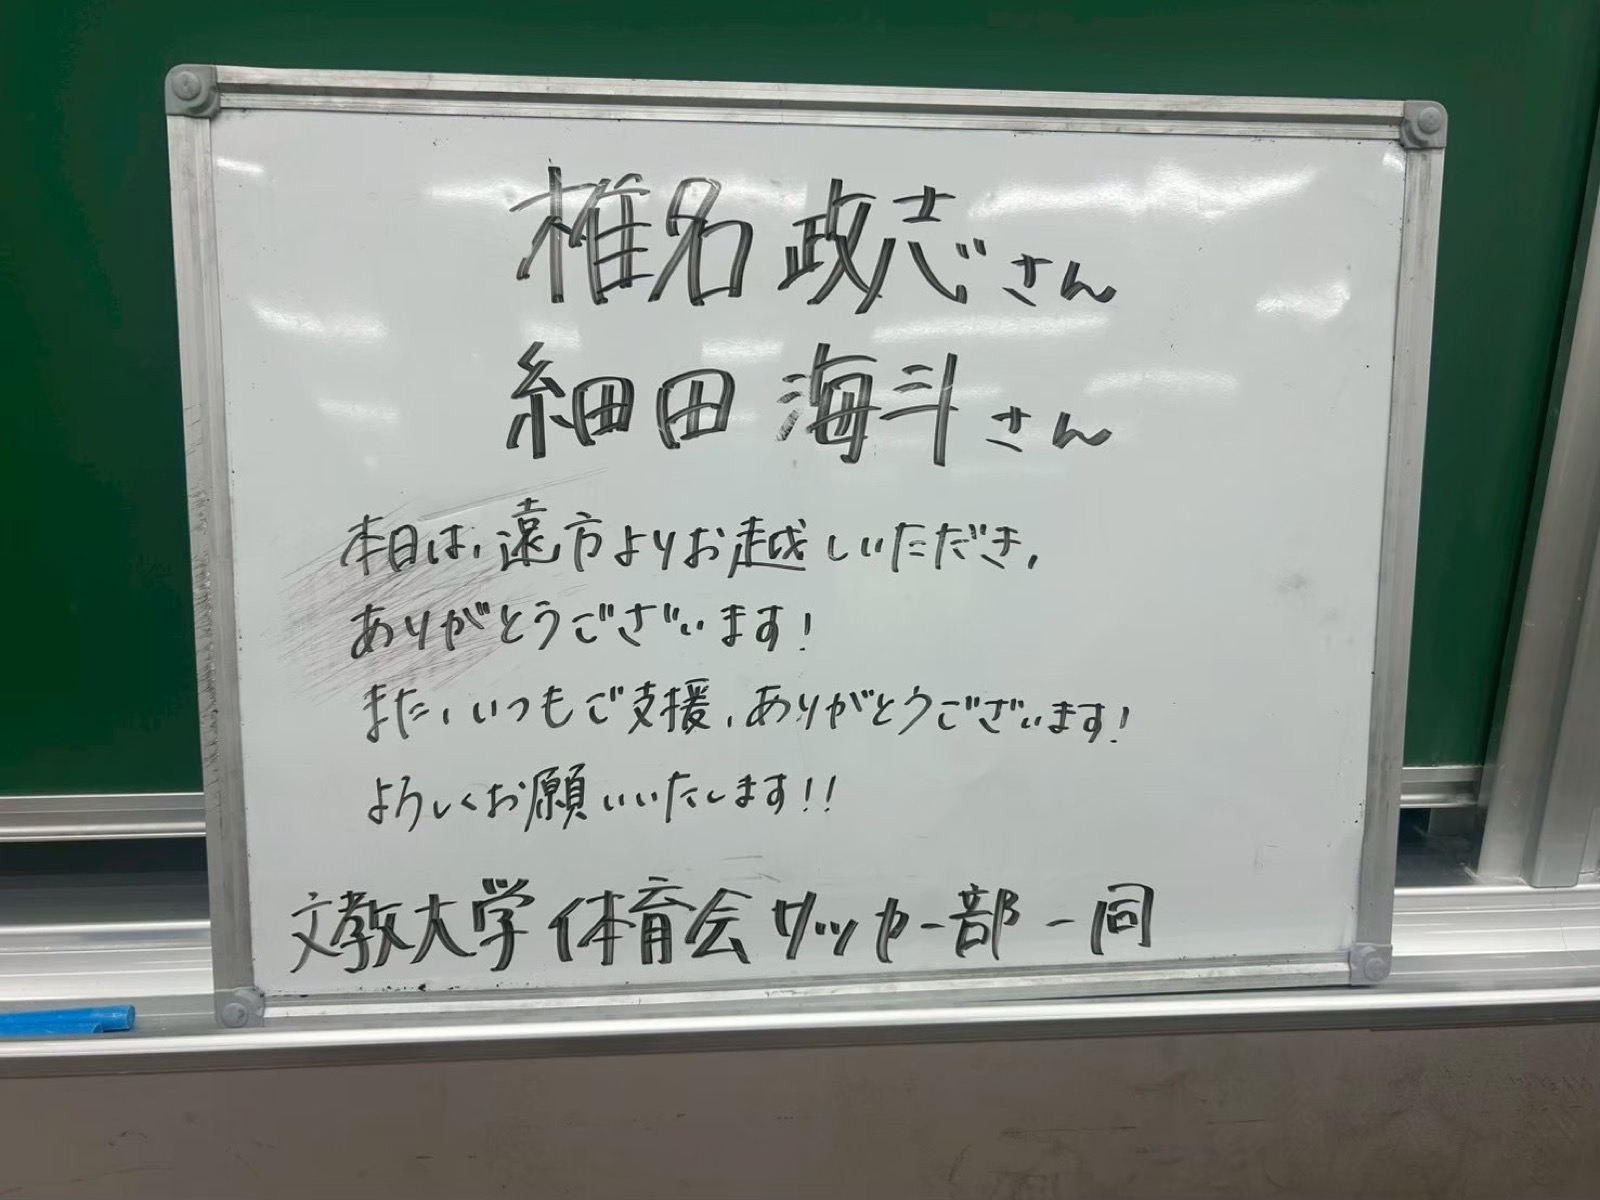 椎名 政志さん
細田 海斗さん
本日は、遠方よりお越しいただき、
ありがとうございます！
また、いつもご支援、ありがとうございます！
よろしくお願いいたします！！
文教大学 体育会サッカー部一同